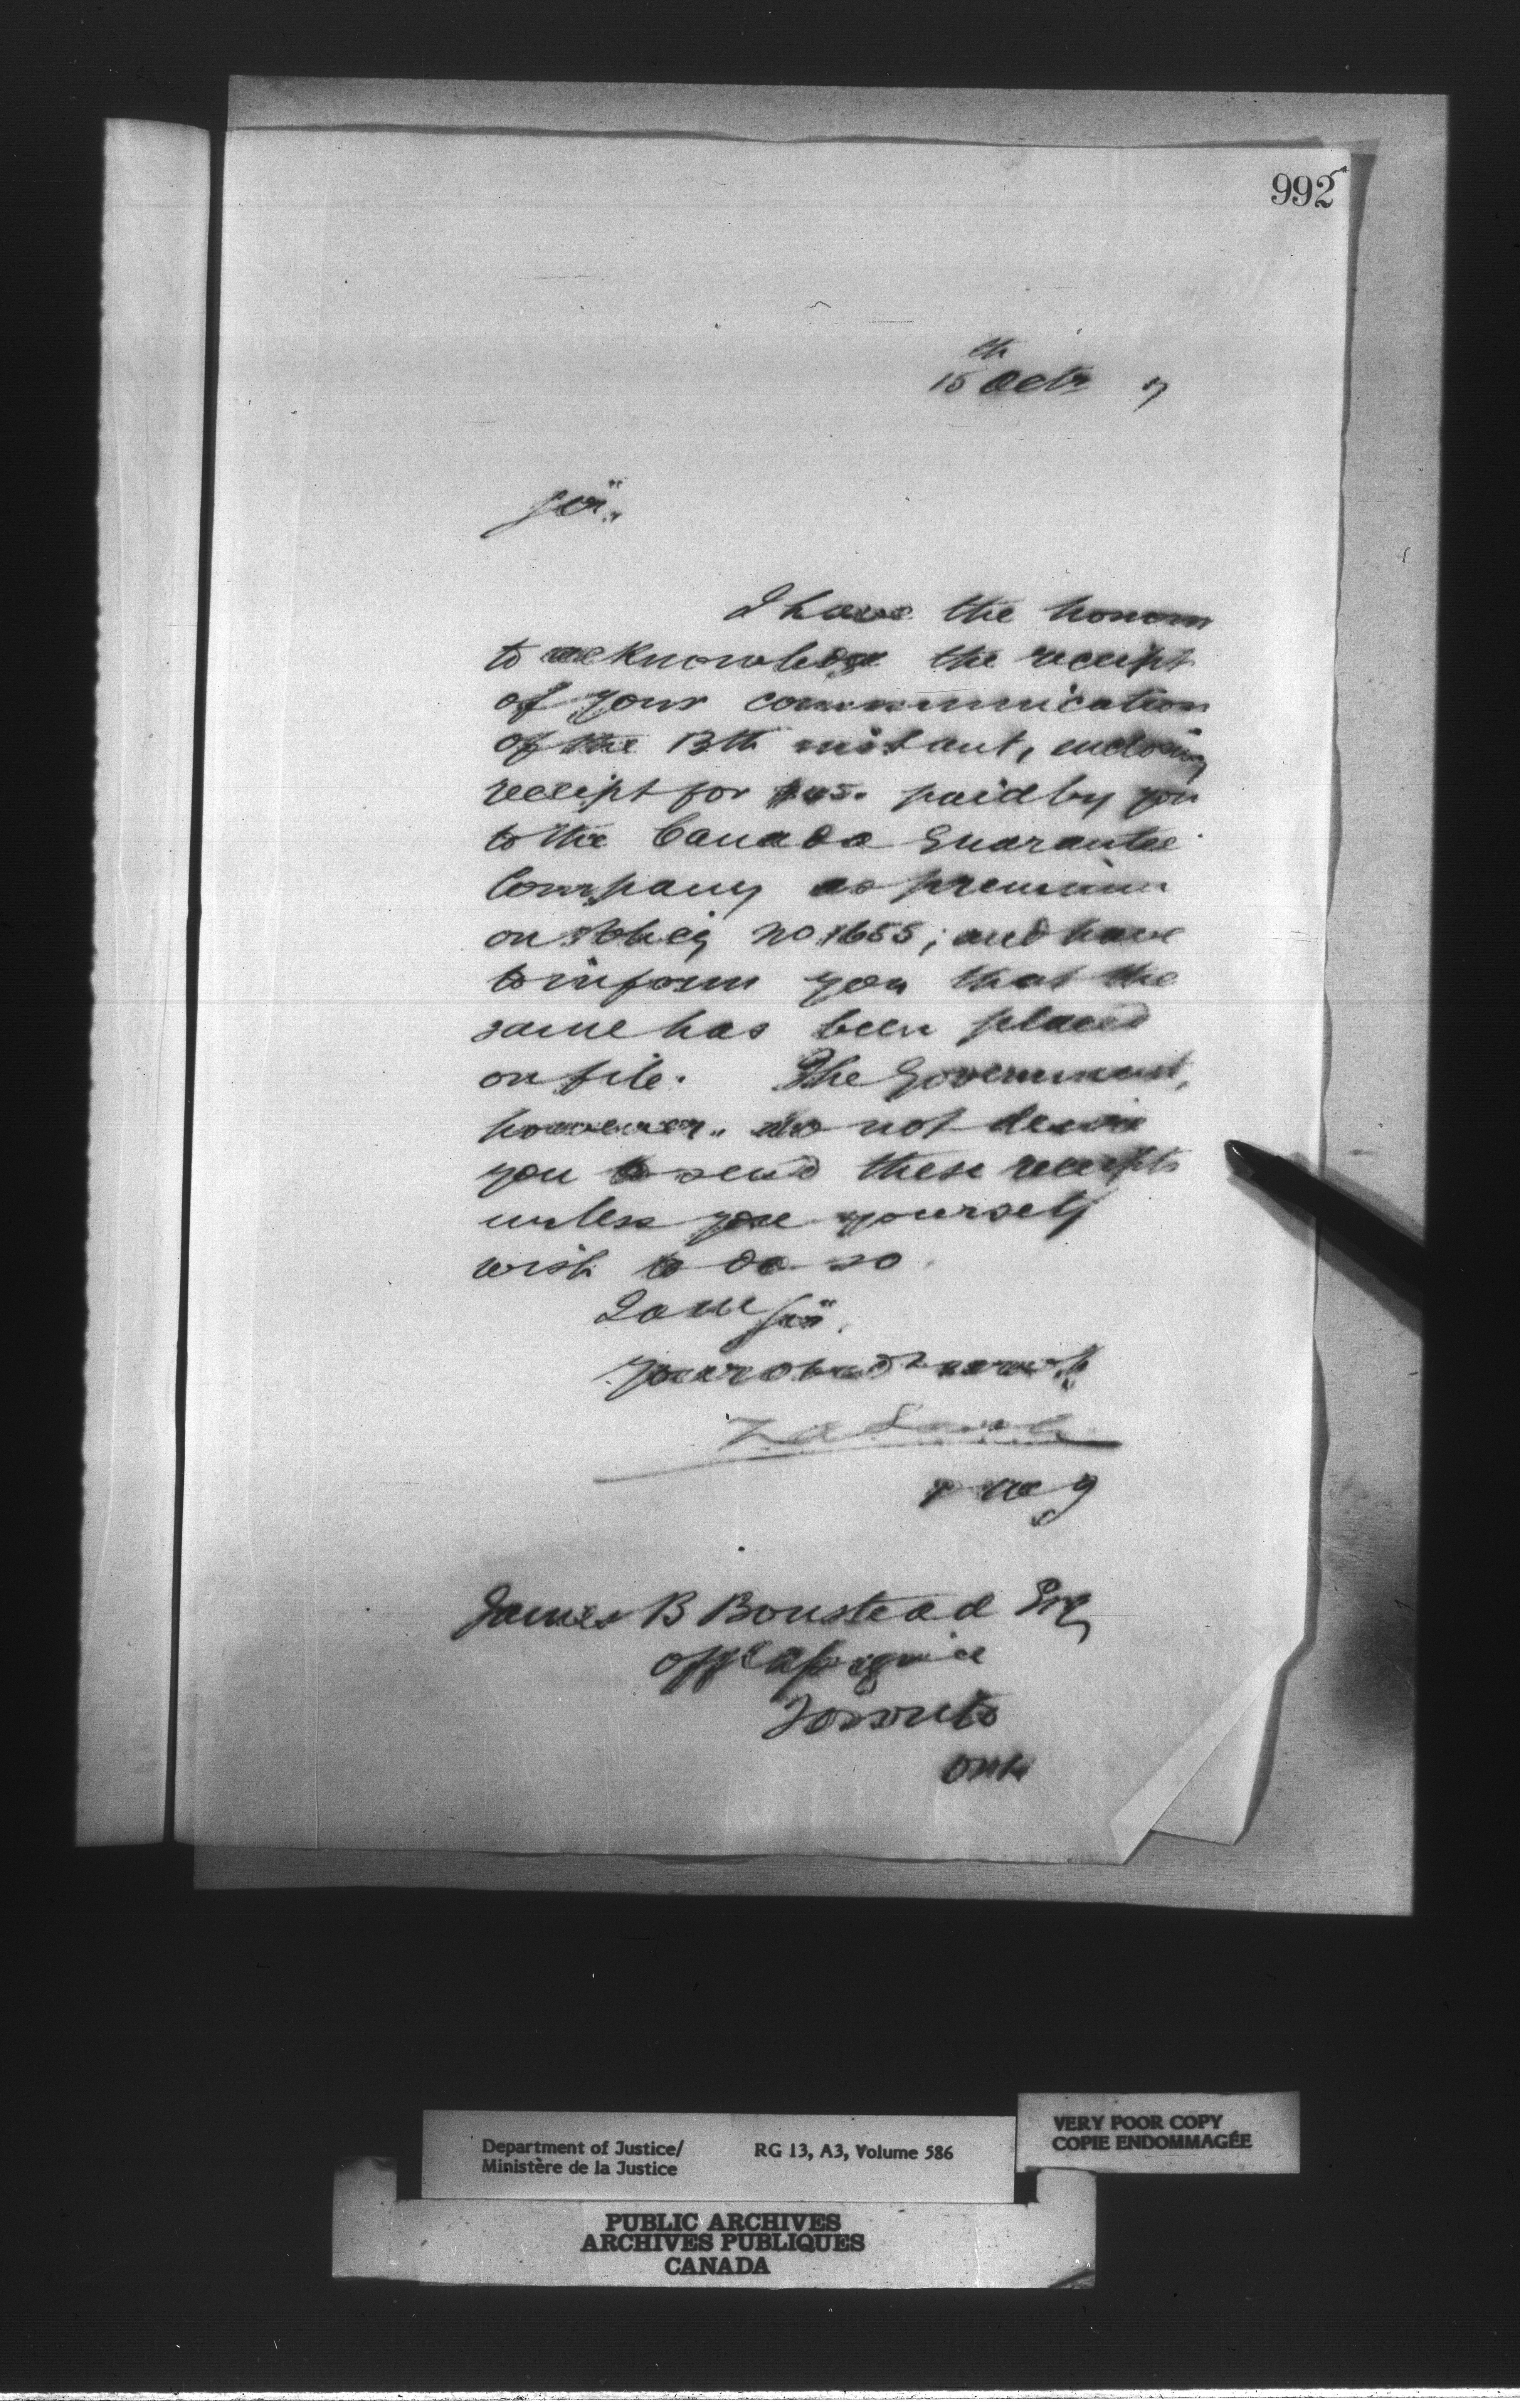 992
15th Octr 7
Sir,
I have the honor
to acknowledge the receipt
of your communication
of the 13th instant, enclosing
receipt for $45. paid by you
to the Canada Guarantee
Company as premium
on Policy No 1655; and have
to inform you that the
same has been placed
on file. The Government,
however, do not desire
you to send these receipts
unless you yourself
wish to do so.
I am Sir,
Your obedt servt
Z A Lash
James B Boustead Esq
Offl Assignee
Toronto
Ont
Department of Justice/
Ministère de la Justice
RG 13, A3, Volume 586
VERY POOR COPY
COPIE ENDOMMAGÉE
PUBLIC ARCHIVES
ARCHIVES PUBLIQUES
CANADA